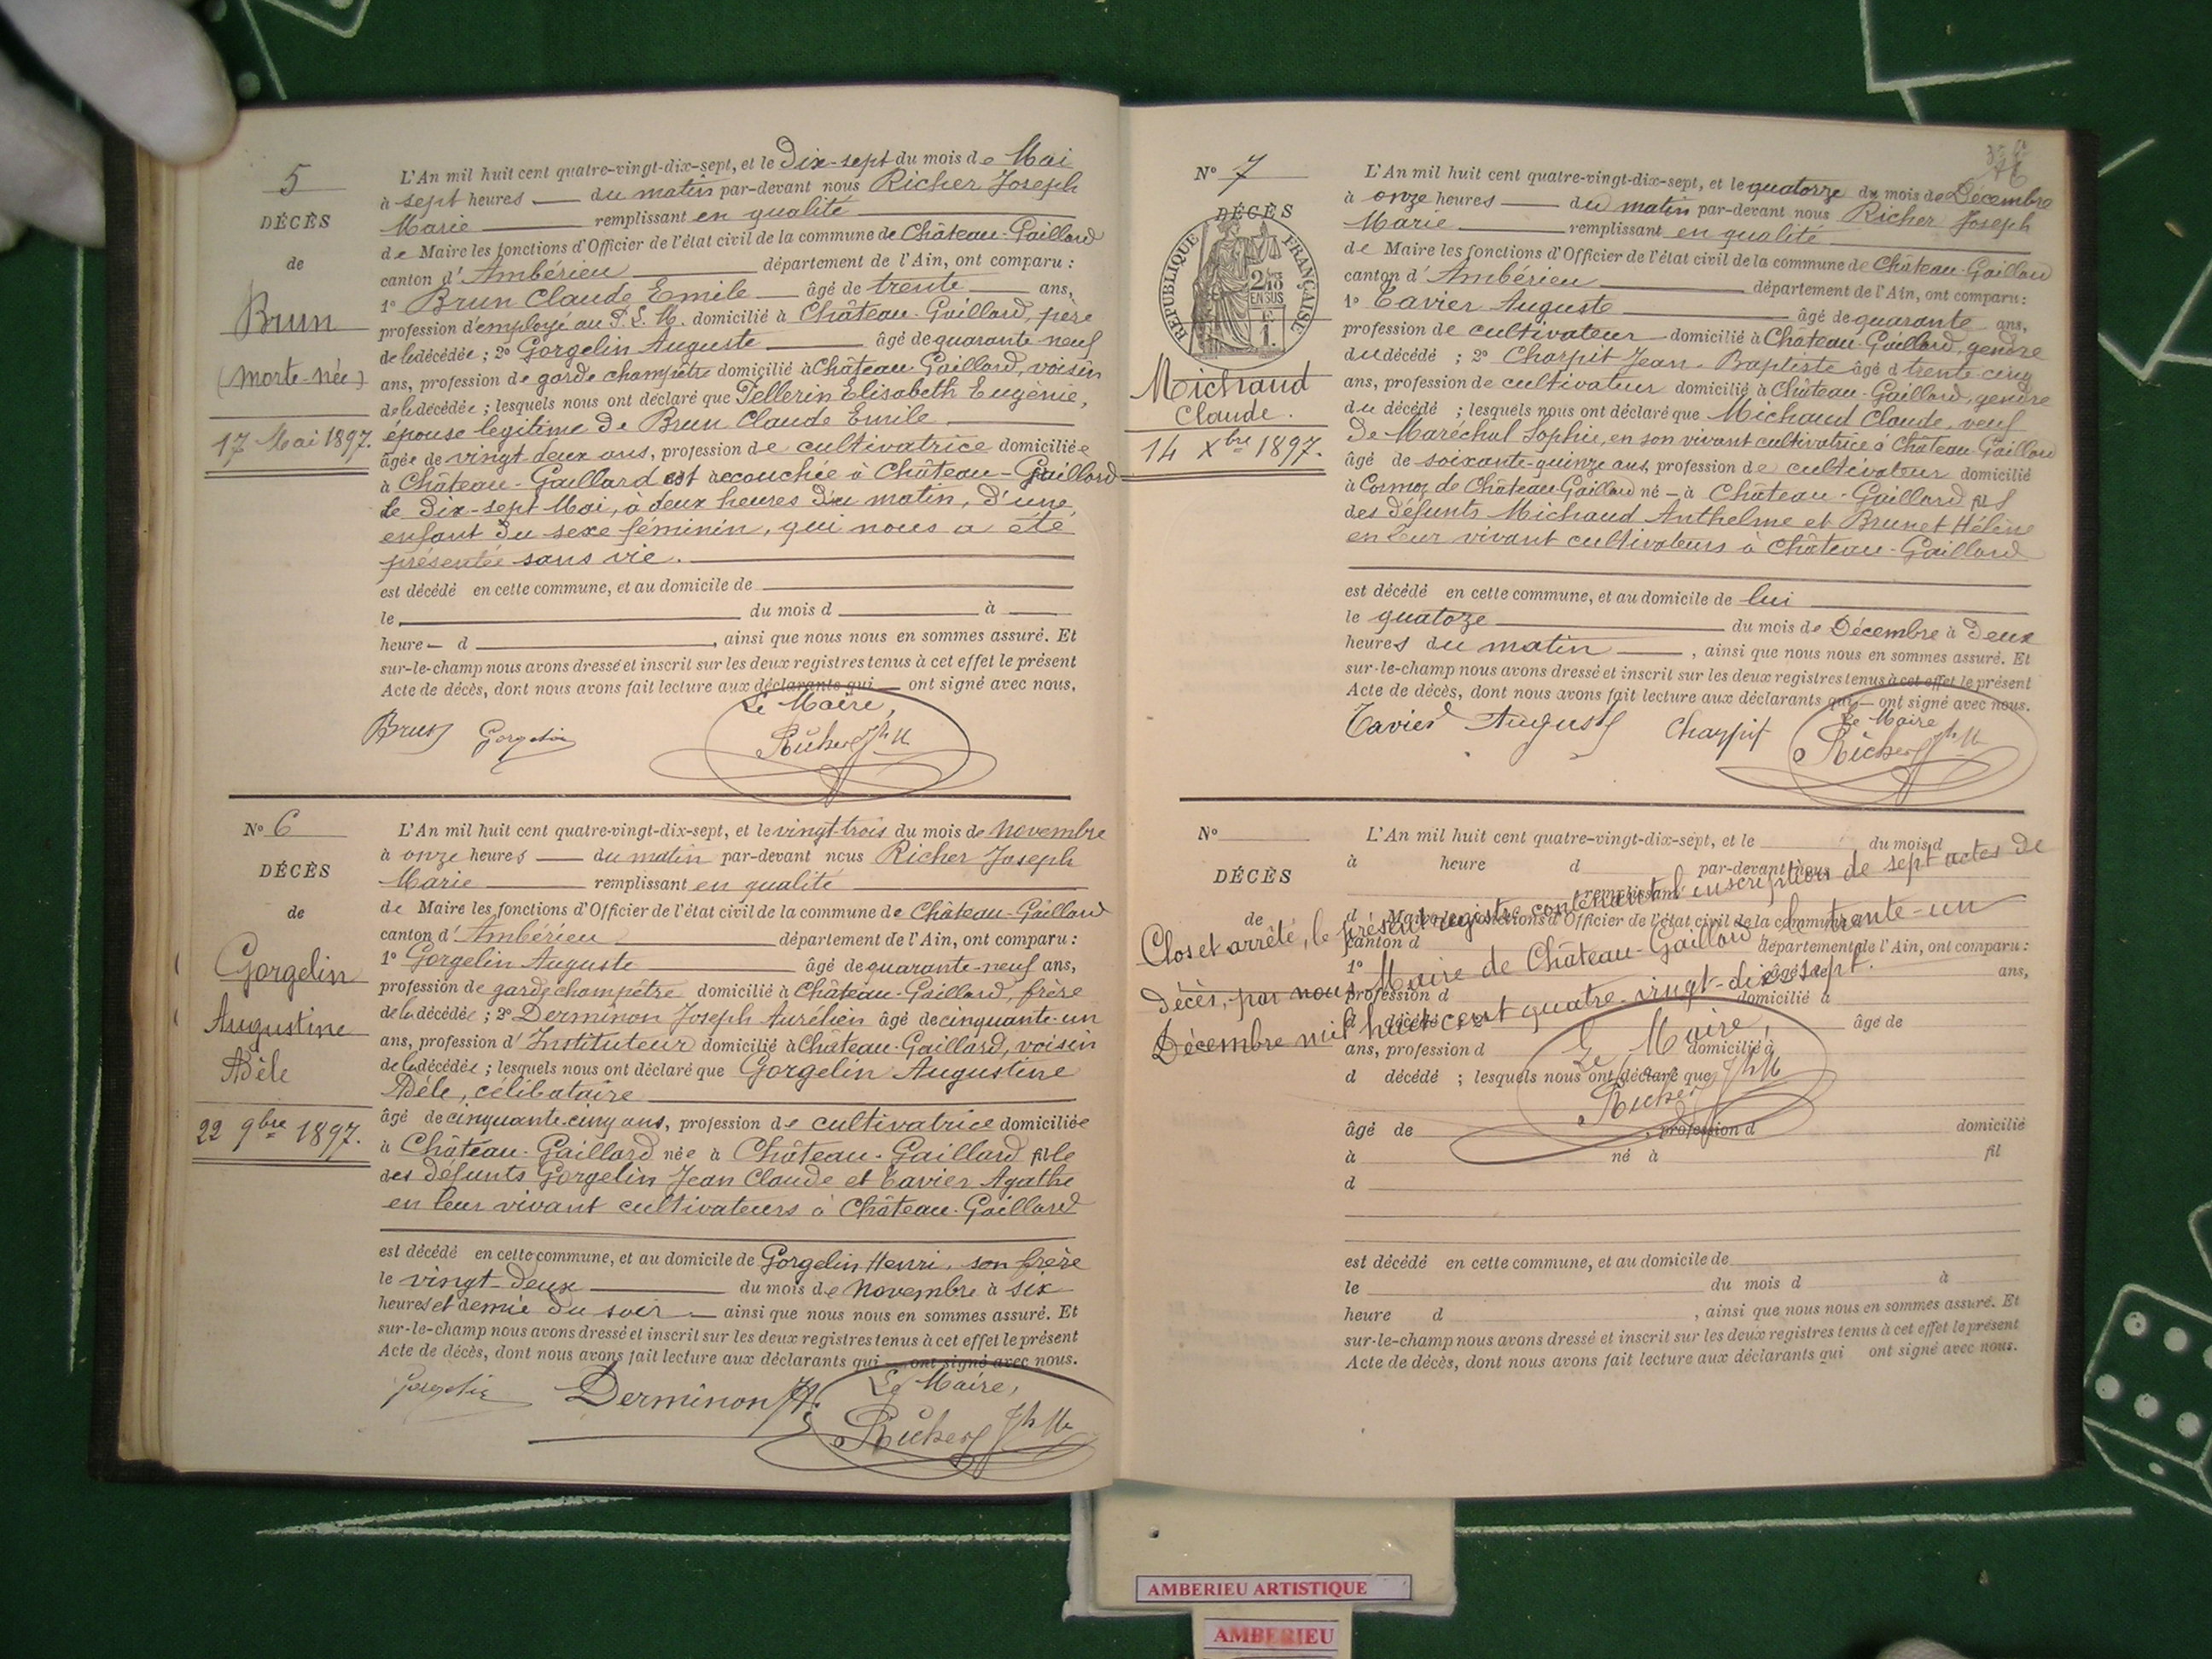 5
DÉCÈS
de
Brun
(Morte-née)
17 Mai 1897.
L'An mil huit cent quatre-vingt-dix-sept, et le Dix-sept du mois de Mai
à sept heures du matin par-devant nous Richer Joseph
Marie remplissant en qualité
de Maire les fonctions d'Officier de l'état civil de la commune de Château-Gaillard
canton d'Ambérieu département de l'Ain, ont comparu :
1° Brun Claude Emile âgé de trente ans,
profession d'employé au P. L. M. domicilié à Château-Gaillard, père
de la décédée ; 2° Gorgelin Auguste âgé de quarante-neuf
ans, profession de garde champêtre domicilié à Château-Gaillard, voisin
de la décédée ; lesquels nous ont déclaré que Pellerin Elisabeth Eugènie,
épouse legitime de Brun Claude Emile
âgée de vingt deux ans, profession de cultivatrice domiciliée
à Château-Gaillard est accouchée à Château-Gaillard
le Dix-sept Mai, à deux heures du matin, d'une
enfant du sexe féminin, qui nous a été
présentée sans vie.
est décédé en cette commune, et au domicile de
le du mois d à
heure d , ainsi que nous nous en sommes assuré. Et
sur-le-champ nous avons dressé et inscrit sur les deux registres tenus à cet effet le présent
Acte de décès, dont nous avons fait lecture aux déclarants qui ont signé avec nous.
Le Maire,
Brun Gorgelin Richer Jh M
N° 6
DÉCÈS
de
Gorgelin
Augustine
Adèle
22 9bre 1897.
L'An mil huit cent quatre-vingt-dix-sept, et le vingt-trois du mois de Novembre
à onze heures du matin par-devant nous Richer Joseph
Marie remplissant en qualité
de Maire les fonctions d'Officier de l'état civil de la commune de Château-Gaillard
canton d'Ambérieu département de l'Ain, ont comparu :
1° Gorgelin Auguste âgé de quarante-neuf ans,
profession de garde champêtre domicilié à Château-Gaillard, frère
de la décédée ; 2° Derminon Joseph Aurélien âgé de cinquante-un
ans, profession d'Instituteur domicilié à Château-Gaillard, voisin
de la décédée ; lesquels nous ont déclaré que Gorgelin Augustine
Adèle, célibataire
âgé de cinquante cinq ans, profession de cultivatrice domiciliée
à Château-Gaillard née à Château-Gaillard fille
des défunts Gorgelin Jean Claude et Tavier Agathe
en leur vivant cultivateurs à Château-Gaillard
est décédé en cette commune, et au domicile de Gorgelin Henri, son frère
le vingt-deux du mois de Novembre à six
heures et demie du soir ainsi que nous nous en sommes assuré. Et
sur-le-champ nous avons dressé et inscrit sur les deux registres tenus à cet effet le présent
Acte de décès, dont nous avons fait lecture aux déclarants qui ont signé avec nous.
Le Maire,
Gorgelin Derminon Jh. Richer Jh M
N° 7
DÉCÈS
RÉPUBLIQUE FRANÇAISE
2/10 EN SUS
1F
Michaud
Claude.
14 Xbre 1897.
L'An mil huit cent quatre-vingt-dix-sept, et le quatorze du mois de Décembre
à onze heures du matin par-devant nous Richer Joseph
Marie remplissant en qualité
de Maire les fonctions d'Officier de l'état civil de la commune de Château-Gaillard
canton d'Ambérieu département de l'Ain, ont comparu :
1° Tavier Auguste âgé de quarante ans,
profession de cultivateur domicilié à Château-Gaillard, gendre
du décédé ; 2° Charpit Jean-Baptiste âgé d trente-cinq
ans, profession de cultivateur domicilié à Château-Gaillard, gendre
du décédé ; lesquels nous ont déclaré que Michaud Claude, veuf
de Maréchal Sophie, en son vivant cultivatrice à Château-Gaillard
âgé de soixante-quinze ans, profession de cultivateur domicilié
à Cormoz de Château-Gaillard né à Château-Gaillard fils
des défunts Michaud Anthelme et Brunet Hélène
en leur vivant cultivateurs à Château-Gaillard
est décédé en cette commune, et au domicile de lui
le quatoze du mois de Décembre à deux
heures du matin , ainsi que nous nous en sommes assuré. Et
sur-le-champ nous avons dressé et inscrit sur les deux registres tenus à cet effet le présent
Acte de décès, dont nous avons fait lecture aux déclarants qui ont signé avec nous.
Le Maire
Tavier Auguste Charpit Richer Jh M
N°
DÉCÈS
de
L'An mil huit cent quatre-vingt-dix-sept, et le du mois d
à heure d par-devant nous
remplissant
d Maire les fonctions d'Officier de l'état civil de la commune d
canton d département de l'Ain, ont comparu :
1° âgé de ans,
profession d domicilié à
d décédé ; 2° âgé de
ans, profession d domicilié à
d décédé ; lesquels nous ont déclaré que
âgé de , profession d domicilié
à né à fil
d
est décédé en cette commune, et au domicile de
le du mois d à
heure d , ainsi que nous nous en sommes assuré. Et
sur-le-champ nous avons dressé et inscrit sur les deux registres tenus à cet effet le présent
Acte de décès, dont nous avons fait lecture aux déclarants qui ont signé avec nous.
Clos et arrêté, le présent registre contenant l'inscription de sept actes de
Décès, par nous Maire de Château-Gaillard le trente-un
Décembre mil huit cent quatre-vingt-dix-sept.
Le Maire,
Richer Jh M
AMBERIEU ARTISTIQUE
AMBERIEU